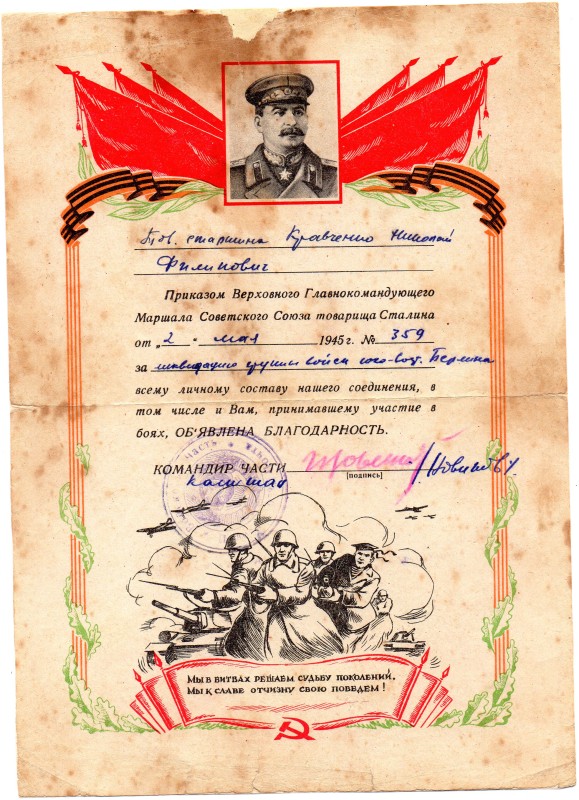 Тов. старшина Кравченко Николай
Филипович
Приказом Верховного Главнокомандующего
Маршала Советского Союза товарища Сталина
от „2 " мая 1945 г. № 359
за ликвидацию группы войск юго-вост. Берлина
всему личному составу нашего соединения, в
том числе и Вам, принимавшему участие в
боях, ОБ'ЯВЛЕНА БЛАГОДАРНОСТЬ.
КОМАНДИР ЧАСТИ
капитан /Новиков/
[подпись]
МЫ В БИТВАХ РЕШАЕМ СУДЬБУ ПОКОЛЕНИЙ,
МЫ К СЛАВЕ ОТЧИЗНУ СВОЮ ПОВЕДЕМ!